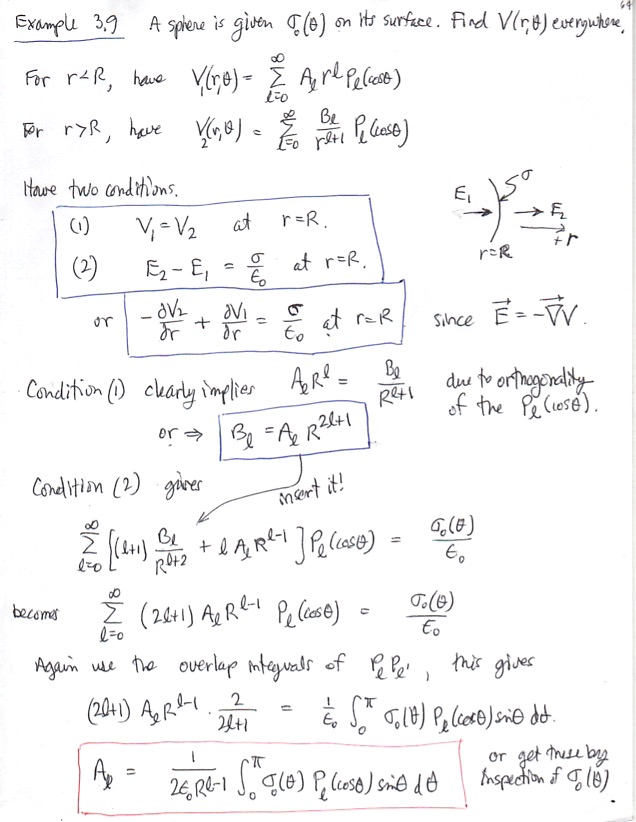 64
Example 3.9 A sphere is given σ₀(θ) on its surface. Find V(r,θ) everywhere.
For r<R, have V₁(r,θ) = ∑_{l=0}^{∞} A_l r^l P_l(cosθ)
For r>R, have V₂(r,θ) = ∑_{l=0}^{∞} B_l/r^{l+1} P_l(cosθ)
Have two conditions.
(1) V₁ = V₂ at r=R.
(2) E₂ − E₁ = σ/ε₀ at r=R.
E₁ σ E₂
r=R +r
or −∂V₂/∂r + ∂V₁/∂r = σ/ε₀ at r=R since E⃗ = −∇⃗V.
Condition (1) clearly implies A_l R^l = B_l/R^{l+1} due to orthogonality
of the P_l(cosθ).
or ⇒ B_l = A_l R^{2l+1}
Condition (2) gives insert it!
∑_{l=0}^{∞} [(l+1) B_l/R^{l+2} + l A_l R^{l−1}] P_l(cosθ) = σ₀(θ)/ε₀
becomes ∑_{l=0}^{∞} (2l+1) A_l R^{l−1} P_l(cosθ) = σ₀(θ)/ε₀
Again use the overlap integrals of P_l P_l', this gives
(2l+1) A_l R^{l−1} · 2/(2l+1) = 1/ε₀ ∫₀^π σ₀(θ) P_l(cosθ) sinθ dθ.
A_l = 1/(2ε₀R^{l−1}) ∫₀^π σ₀(θ) P_l(cosθ) sinθ dθ
or get these by
inspection of σ₀(θ)